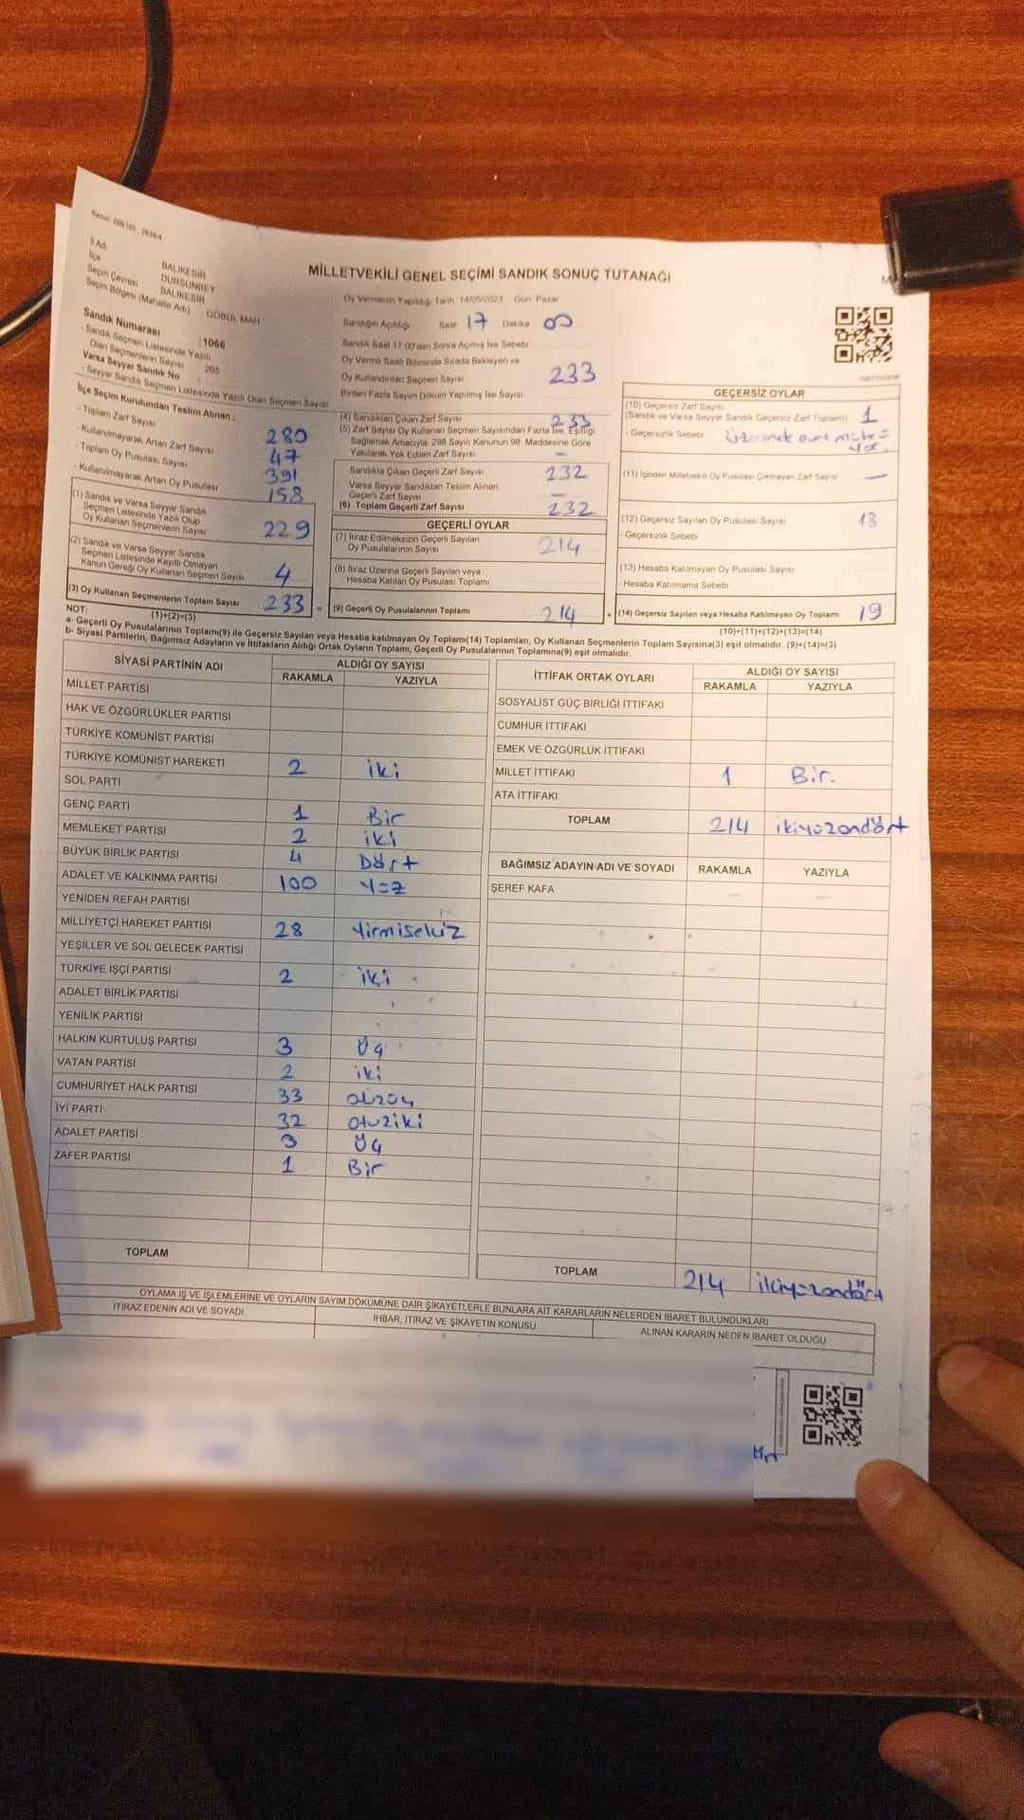 İl Adı
BALIKESİR
İlçe
DURSUNBEY
Seçim Çevresi
BALIKESİR
Seçim Bölgesi (Mahalle Adı)
GÖBÜL MAH
MİLLETVEKİLİ GENEL SEÇİMİ SANDIK SONUÇ TUTANAĞI
Oy Vermenin Yapıldığı Tarih: 14/05/2023 Gün: Pazar
Sandığın Açıldığı Saat 17 Dakika 00
Sandık Saat 17:00'dan Sonra Açılmış İse Sebebi
Oy Verme Saati Bitiminde Sırada Bekleyen ve
Oy Kullandırılan Seçmen Sayısı 233
Birden Fazla Sayım Döküm Yapılmış İse Sayısı
Sandık Numarası : 1066
- Sandık Seçmen Listesinde Yazılı
Olan Seçmenlerin Sayısı 265
Varsa Seyyar Sandık No
- Seyyar Sandık Seçmen Listesinde Yazılı Olan Seçmen Sayısı
İlçe Seçim Kurulundan Teslim Alınan :
- Toplam Zarf Sayısı 280
- Kullanılmayarak Artan Zarf Sayısı 47
- Toplam Oy Pusulası Sayısı 391
- Kullanılmayarak Artan Oy Pusulası 158
(1) Sandık ve Varsa Seyyar Sandık
Seçmen Listesinde Yazılı Olup
Oy Kullanan Seçmenlerin Sayısı 229
(2) Sandık ve Varsa Seyyar Sandık
Seçmen Listesinde Kayıtlı Olmayan
Kanun Gereği Oy Kullanan Seçmen Sayısı 4
(3) Oy Kullanan Seçmenlerin Toplam Sayısı 233
(1)+(2)=(3)
(4) Sandıktan Çıkan Zarf Sayısı 233
(5) Zarf Sayısı Oy Kullanan Seçmen Sayısından Fazla İse, Eşitliği
Sağlamak Amacıyla; 298 Sayılı Kanunun 98. Maddesine Göre
Yakılarak Yok Edilen Zarf Sayısı —
Sandıkta Çıkan Geçerli Zarf Sayısı 232
Varsa Seyyar Sandıktan Teslim Alınan
Geçerli Zarf Sayısı —
(6) Toplam Geçerli Zarf Sayısı 232
GEÇERLİ OYLAR
(7) İtiraz Edilmeksizin Geçerli Sayılan
Oy Pusulalarının Sayısı 214
(8) İtiraz Üzerine Geçerli Sayılan veya
Hesaba Katılan Oy Pusulası Toplamı
(9) Geçerli Oy Pusulalarının Toplamı 214
GEÇERSİZ OYLAR
(10) Geçersiz Zarf Sayısı
(Sandık ve Varsa Seyyar Sandık Geçersiz Zarf Toplamı) 1
- Geçersizlik Sebebi
(11) İçinden Milletvekili Oy Pusulası Çıkmayan Zarf Sayısı —
(12) Geçersiz Sayılan Oy Pusulası Sayısı 18
- Geçersizlik Sebebi
(13) Hesaba Katılmayan Oy Pusulası Sayısı
- Hesaba Katılmama Sebebi
(14) Geçersiz Sayılan veya Hesaba Katılmayan Oy Toplamı 19
(10)+(11)+(12)+(13)=(14)
NOT:
a- Geçerli Oy Pusulalarının Toplamı(9) ile Geçersiz Sayılan veya Hesaba katılmayan Oy Toplamı(14) Toplamları, Oy Kullanan Seçmenlerin Toplam Sayısına(3) eşit olmalıdır. (9)+(14)=(3)
b- Siyasi Partilerin, Bağımsız Adayların ve İttifakların Aldığı Ortak Oyların Toplamı, Geçerli Oy Pusulalarının Toplamına(9) eşit olmalıdır.
SİYASİ PARTİNİN ADI
ALDIĞI OY SAYISI
RAKAMLA YAZIYLA
MİLLET PARTİSİ
HAK VE ÖZGÜRLÜKLER PARTİSİ
TÜRKİYE KOMÜNİST PARTİSİ
TÜRKİYE KOMÜNİST HAREKETİ 2 iki
SOL PARTİ
GENÇ PARTİ 1 Bir
MEMLEKET PARTİSİ 2 iki
BÜYÜK BİRLİK PARTİSİ 4 Dört
ADALET VE KALKINMA PARTİSİ 100 Yüz
YENİDEN REFAH PARTİSİ
MİLLİYETÇİ HAREKET PARTİSİ 28 Yirmisekiz
YEŞİLLER VE SOL GELECEK PARTİSİ
TÜRKİYE İŞÇİ PARTİSİ 2 iki
ADALET BİRLİK PARTİSİ
YENİLİK PARTİSİ
HALKIN KURTULUŞ PARTİSİ 3 Üç
VATAN PARTİSİ 2 iki
CUMHURİYET HALK PARTİSİ 33 otuzüç
İYİ PARTİ 32 otuziki
ADALET PARTİSİ 3 Üç
ZAFER PARTİSİ 1 Bir
TOPLAM
İTTİFAK ORTAK OYLARI
ALDIĞI OY SAYISI
RAKAMLA YAZIYLA
SOSYALİST GÜÇ BİRLİĞİ İTTİFAKI
CUMHUR İTTİFAKI
EMEK VE ÖZGÜRLÜK İTTİFAKI
MİLLET İTTİFAKI 1 Bir.
ATA İTTİFAKI
TOPLAM 214 ikiyüzondört
BAĞIMSIZ ADAYIN ADI VE SOYADI RAKAMLA YAZIYLA
ŞEREF KAFA
TOPLAM 214 ikiyüzondört
OYLAMA İŞ VE İŞLEMLERİNE VE OYLARIN SAYIM DÖKÜMÜNE DAİR ŞİKAYETLERLE BUNLARA AİT KARARLARIN NELERDEN İBARET BULUNDUKLARI
İTİRAZ EDENİN ADI VE SOYADI
İHBAR, İTİRAZ VE ŞİKAYETİN KONUSU
ALINAN KARARIN NEDEN İBARET OLDUĞU